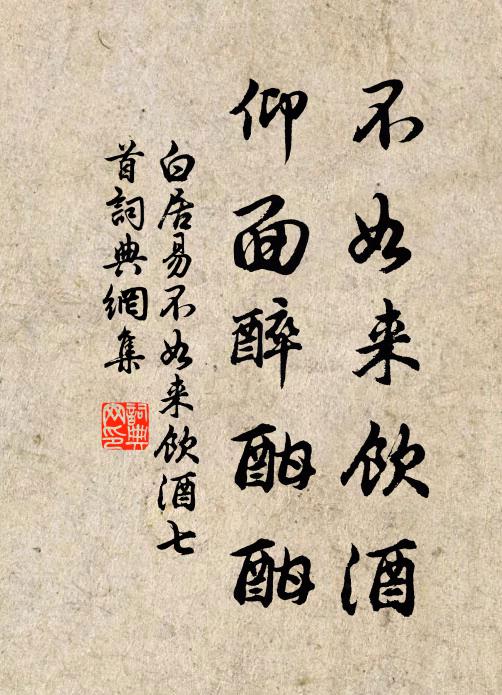 不如来飲酒
仰面醉酣酣
白居易不如来飲酒七
首詞典網集
詞典
网印